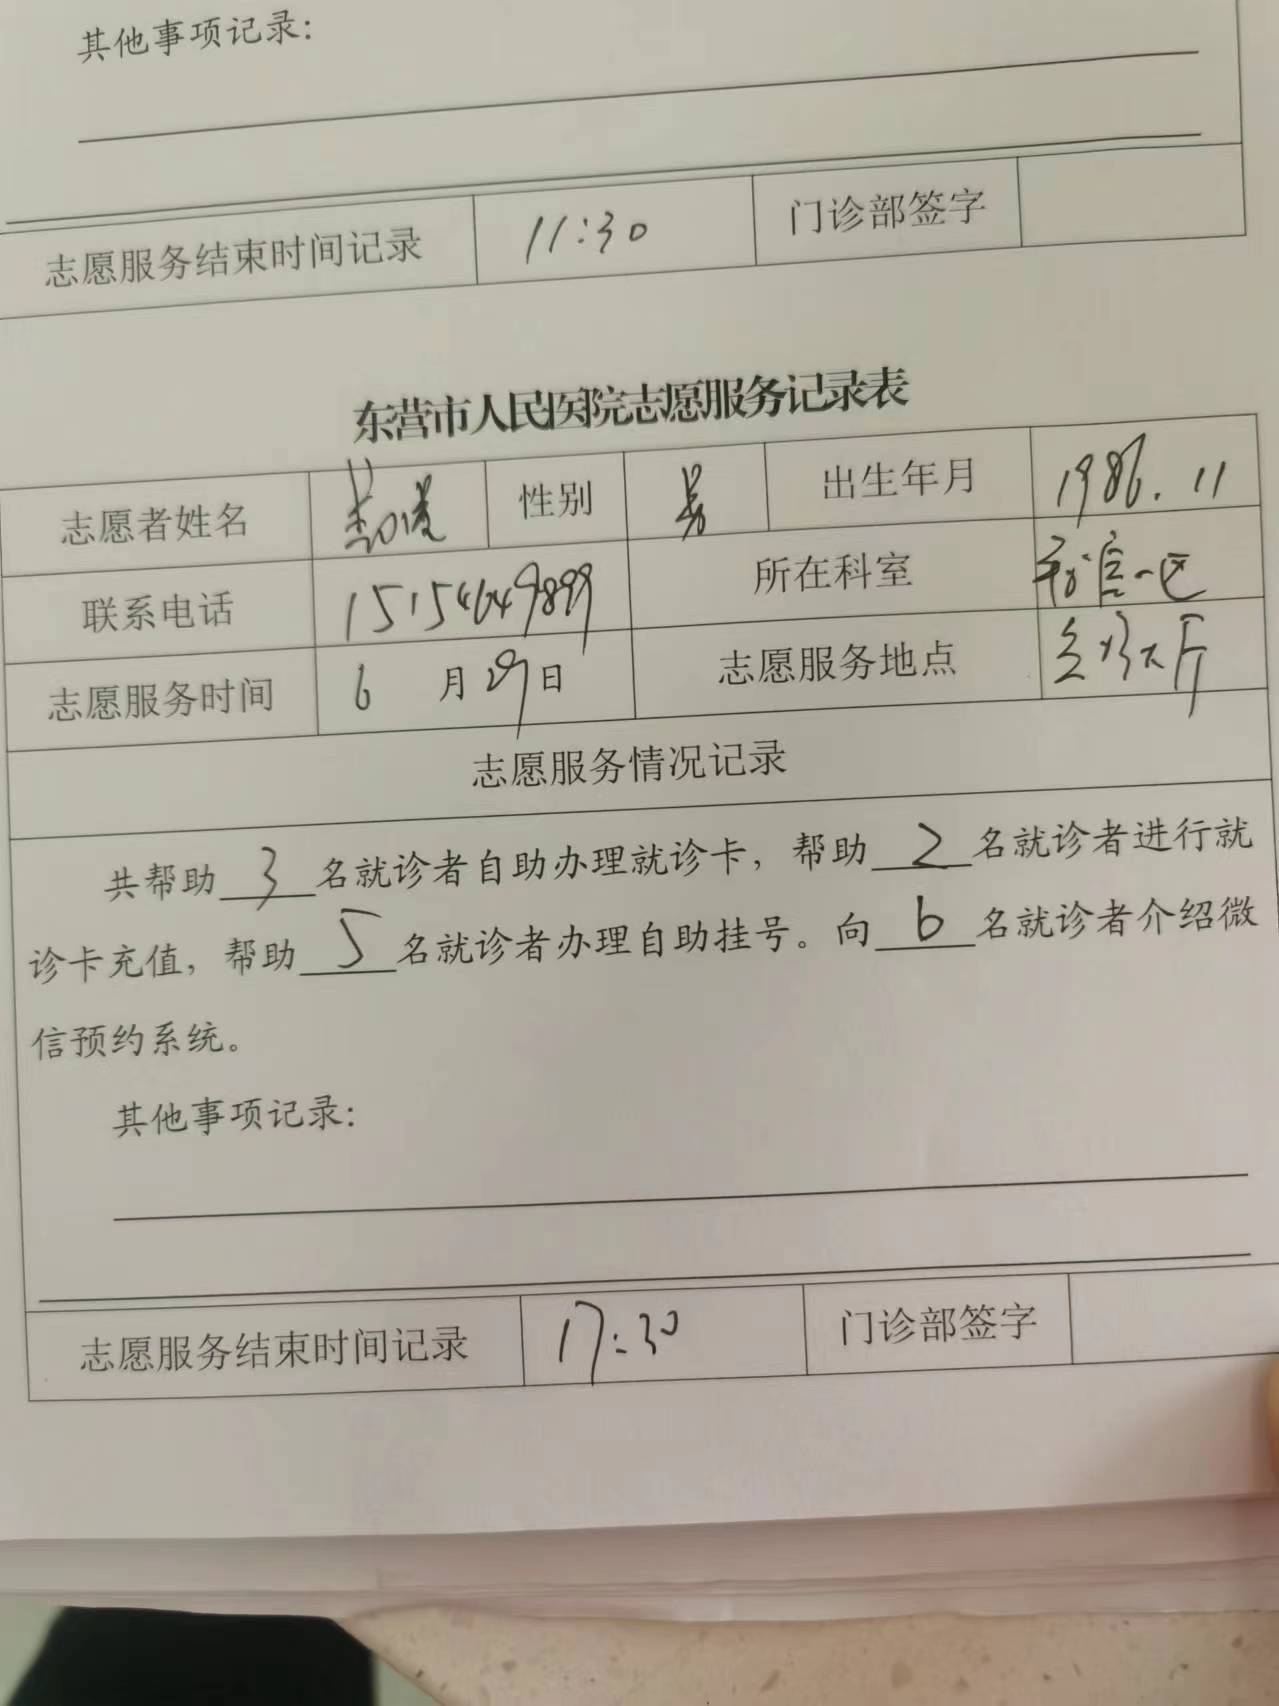 其他事项记录：
志愿服务结束时间记录 11:30 门诊部签字
东营市人民医院志愿服务记录表
志愿者姓名 性别 男 出生年月 1986.11
联系电话 15154649899 所在科室 一区
志愿服务时间 6 月 29 日 志愿服务地点 大厅
志愿服务情况记录
共帮助 3 名就诊者自助办理就诊卡，帮助 2 名就诊者进行就
诊卡充值，帮助 5 名就诊者办理自助挂号。向 6 名就诊者介绍微
信预约系统。
其他事项记录：
志愿服务结束时间记录 17:30 门诊部签字